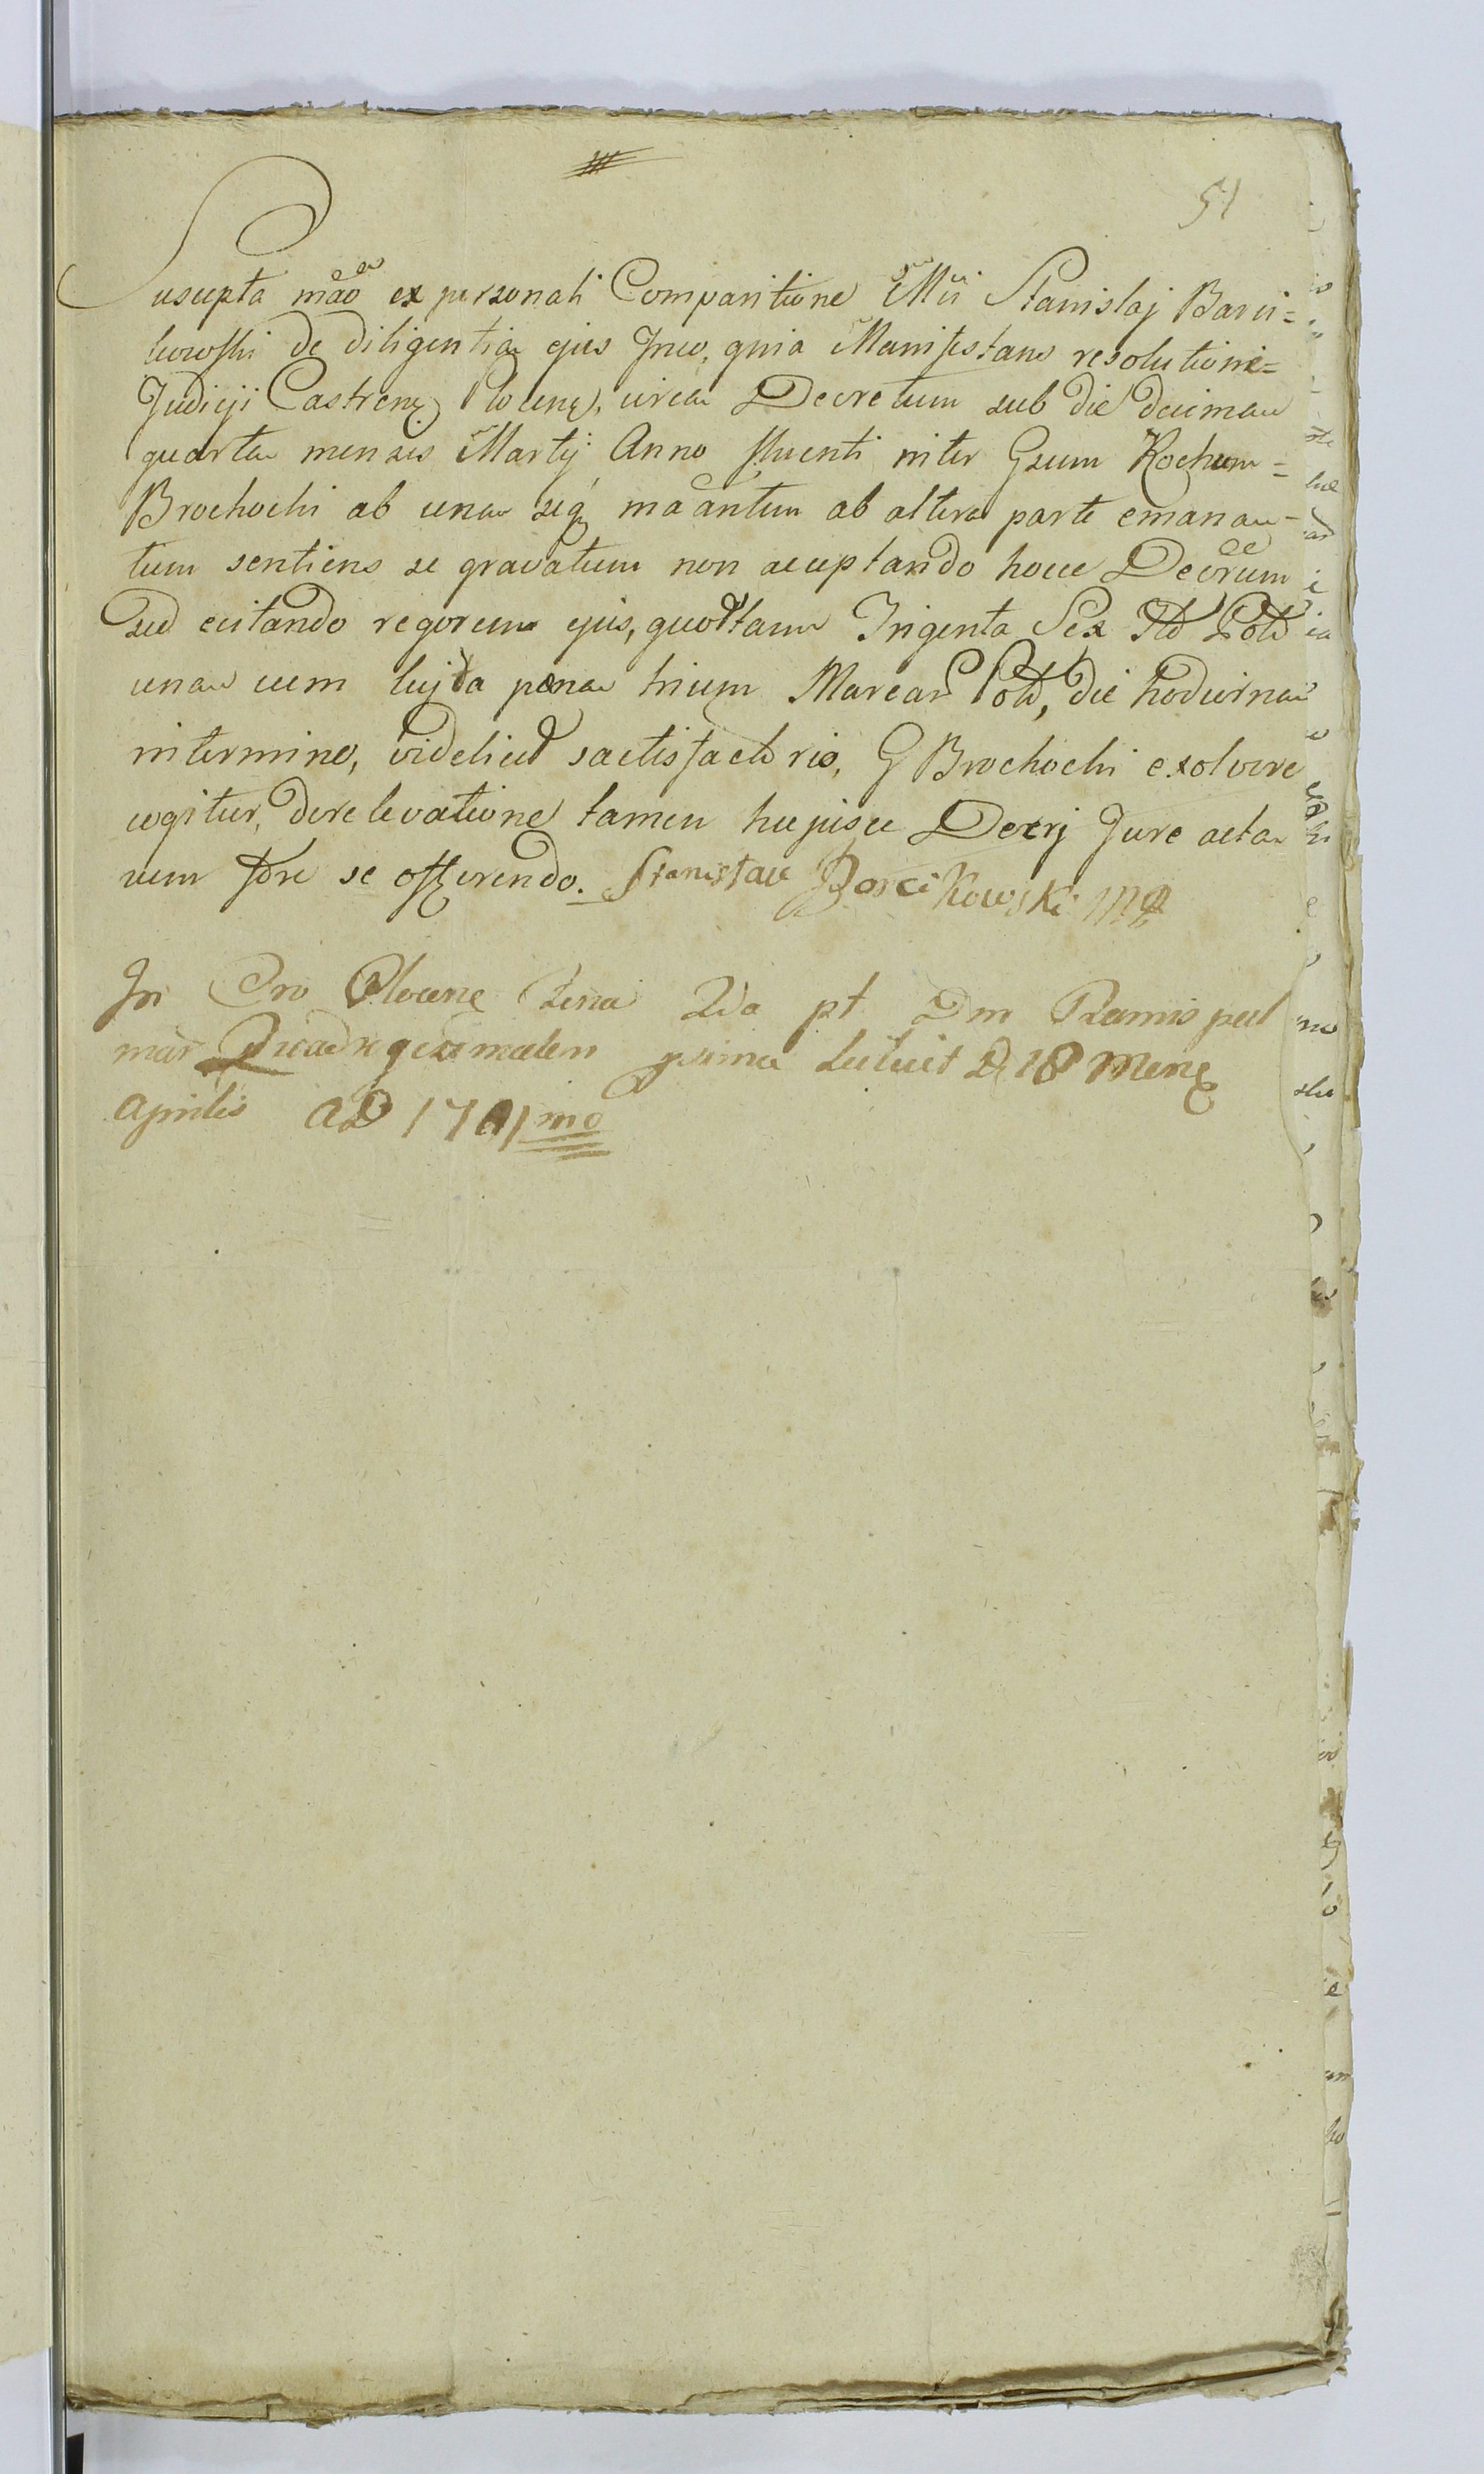 51
Suscepta mãõ ex personali Comparitione Mci Stanislaj Barci=
kowski de diligentia ejus Jnco, quia Manifestans resolutione=
Judicij Castrenę Plocenę, circa Decretum sub die decima
quarta mensis Martij Anno fluenti inter Gsum Rochum=
Brochocki ab una seq, maantem ab altera parte emana-
tum sentiens se gravatum non acceptando hocce Decrum
sed evitando regorem ejus, quottam Trigenta Sex Fld Pold
una cum lujta pæna trium Marcar Pold, die hodierna
in termino, videlicet sactisfactorio, G Brochocki exolvere
cogitur, de relevatione tamen hujusce Decrj Jure acta
cum fore se offerendo. Stanisław Barcikowski mp
In Cro Plocenę feria 2da pt Dm Ramis pal
mar Quadragesimalem
Aprilis AD 1791mo